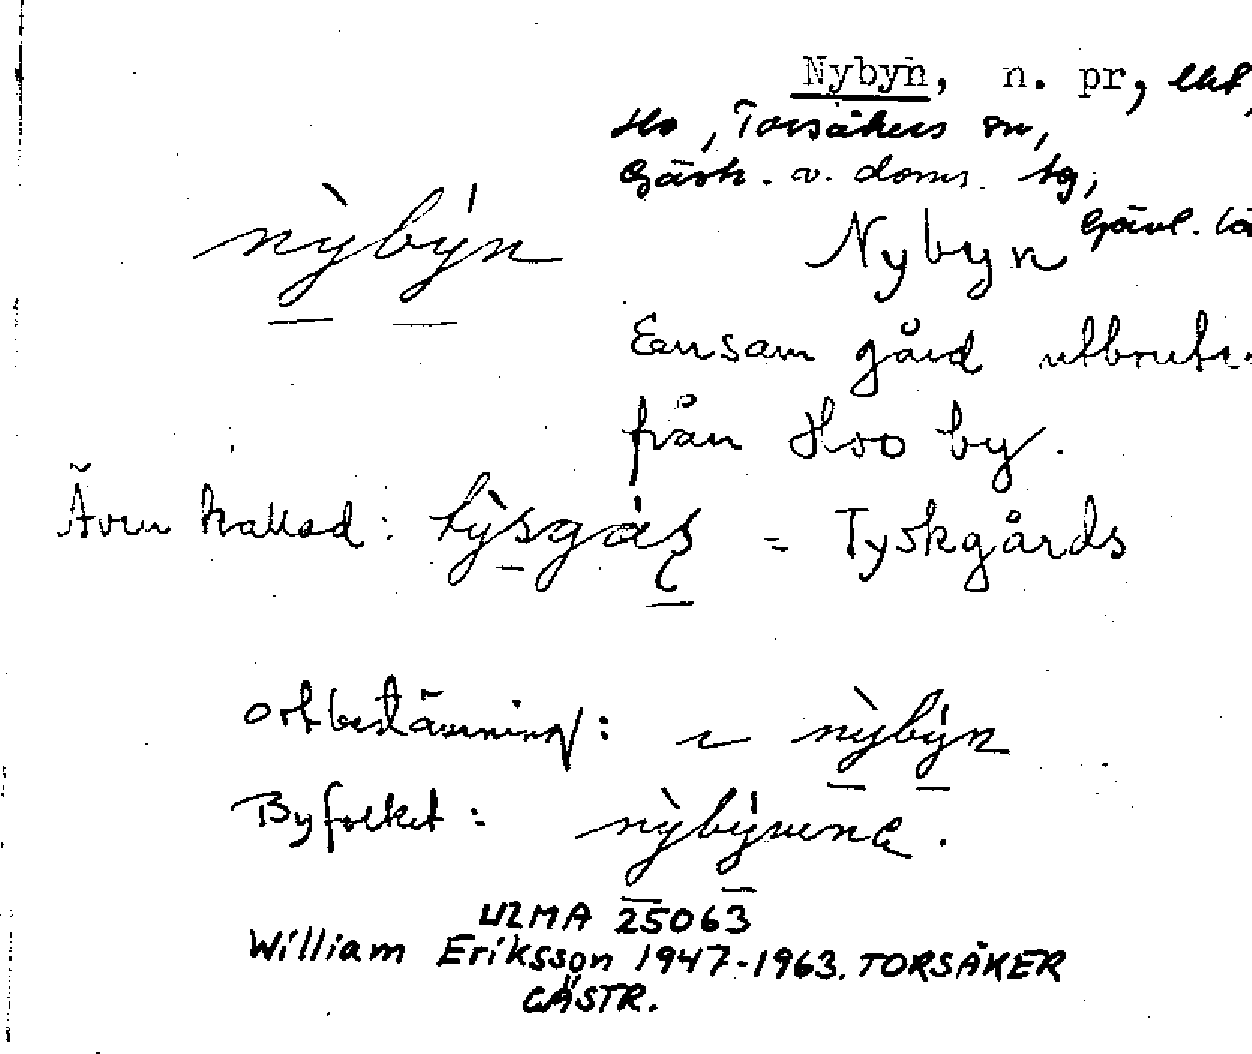 Nybyn, n. pr,
Torsåkers sn,
Gästr. v. doms. tg,
Gävl. lä
nỳbýn
Nybyn
Ensam gård utbruten
från Hoo by.
Även kallad: = Tyskgårds
ortbestämning: nỳbýn
Byfolket:
ULMA 25063
William Eriksson 1947-1963. TORSÅKER
GÄSTR.